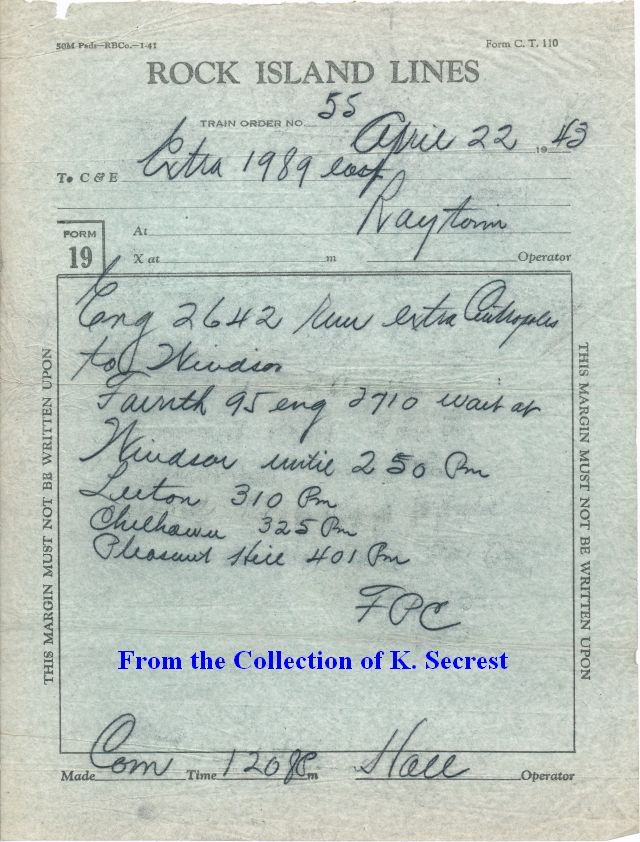 50M Pads—RBCo.—1-41 Form C. T. 110
ROCK ISLAND LINES
TRAIN ORDER NO. 55
April 22 1943
To C & E Extra 1989 east
Raytown
At
X at m Operator
FORM
19
Eng 2642 run extra Centropolis
to Windsor
Fourth 95 eng 2710 wait at
Windsor until 250 Pm
Leeton 310 Pm
Chilhowee 325 Pm
Pleasant Hill 401 Pm
FPC
THIS MARGIN MUST NOT BE WRITTEN UPON
THIS MARGIN MUST NOT BE WRITTEN UPON
From the Collection of K. Secrest
Made Com Time 120 Pm Hall Operator